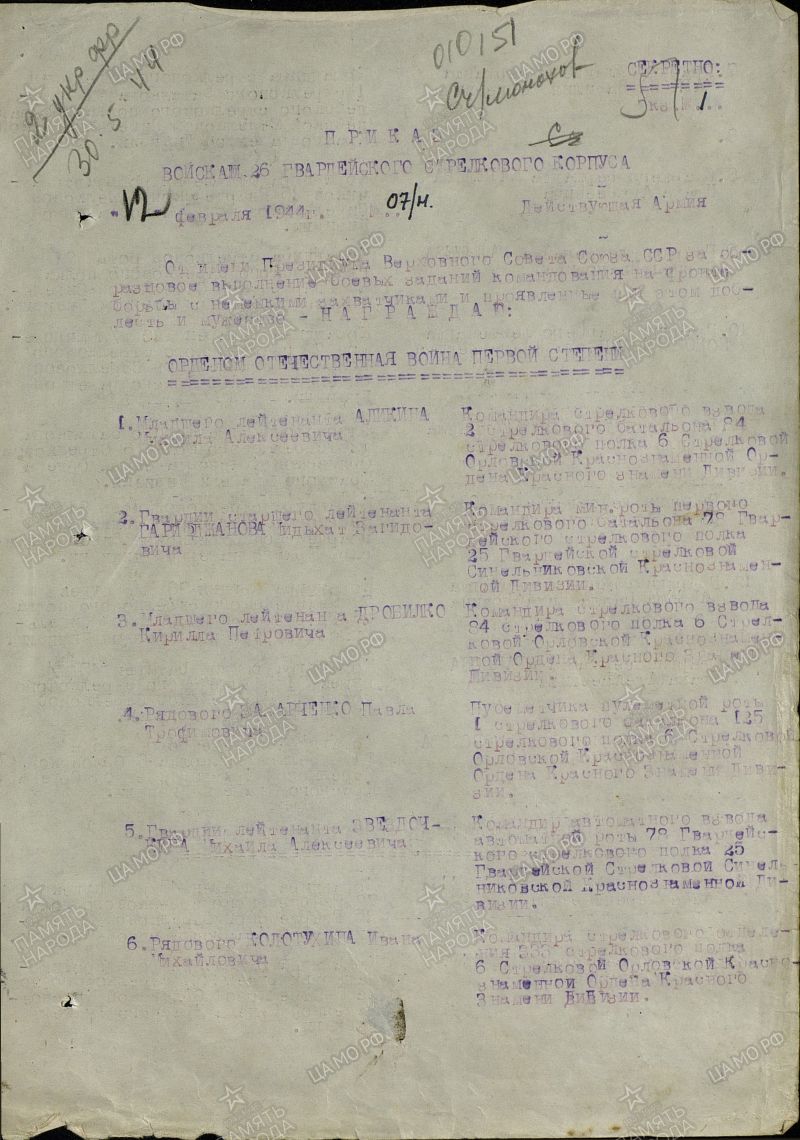 2 укр фр
30.5 44
010151
СЕКРЕТНО:
Экз № 1.
ПРИКАЗ
ВОЙСКАМ 26 ГВАРДЕЙСКОГО СТРЕЛКОВОГО КОРПУСА
"12" февраля 1944г. № 07/н. Действующая Армия
От имени Президиума Верховного Совета Союза ССР за об-
разцовое выполнение боевых заданий командования на фронте
борьбы с немецкими захватчиками и проявленные при этом доб-
лесть и мужество - НАГРАЖДАЮ:
ОРДЕНОМ ОТЕЧЕСТВЕННАЯ ВОЙНА ПЕРВОЙ СТЕПЕНИ
1. Младшего лейтенанта АЛИКИНА
Михаила Алексеевича
Командира стрелкового взвода
2 стрелкового батальона 84
стрелкового полка 6 Стрелковой
Орловской Краснознаменной Ор-
дена Красного знамени Дивизии.
2. Гвардии старшего лейтенанта
Вагидо-
вича
Командира мин.роты первого
стрелкового батальона 78 Гвар-
дейского стрелкового полка
25 Гвардейской стрелковой
Синельниковской Краснознамен-
ной Дивизии.
3. Младшего лейтенанта ДРОБИЛКО
Кирилла Петровича
Командира стрелкового взвода
84 стрелкового полка 6 Стрел-
ковой Орловской Краснознамен-
ной Ордена Красного Знамени
Дивизии.
4. Рядового ЗАХАРЧЕНКО Павла
Трофимовича
Пулеметчика пулеметной роты
1 стрелкового батальона 125
стрелкового полка 6 Стрелковой
Орловской Краснознаменной
Ордена Красного Знамени Диви-
зии.
5. Гвардии лейтенанта ЗВЕЗДОЧ-
Михаила Алексеевича
Командир автоматного взвода
автоматной роты 78 Гвардейс-
кого стрелкового полка 25
Гвардейской Стрелковой Синель-
никовской Краснознаменной Ди-
визии.
6. Рядового КОЛОТУХИНА Ивана
Михайловича
Командира стрелкового отделе-
ния 333 стрелкового полка
6 Стрелковой Орловской Красно-
знаменной Ордена Красного
Знамени Дивизии.